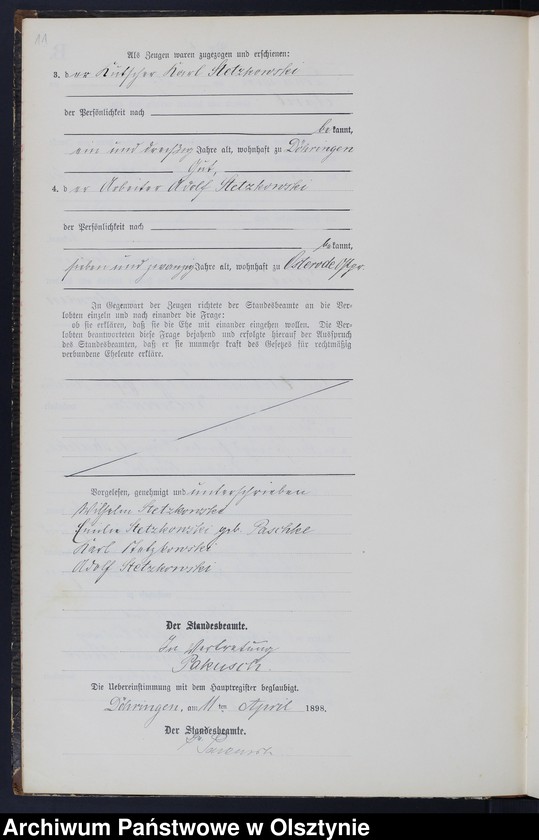 11
Als Zeugen waren zugezogen und erschienen:
3. der Kutscher Karl Stetzkowski
der Persönlichkeit nach
bekannt,
ein und dreißig Jahre alt, wohnhaft zu Döhringen
Gut,
4. der Arbeiter Adolf Stetzkowski
der Persönlichkeit nach
bekannt,
sieben und zwanzig Jahre alt, wohnhaft zu Osterode Ostpr.
In Gegenwart der Zeugen richtete der Standesbeamte an die Ver-
lobten einzeln und nach einander die Frage:
ob sie erklären, daß sie die Ehe mit einander eingehen wollen. Die Ver-
lobten beantworteten diese Frage bejahend und erfolgte hierauf der Ausspruch
des Standesbeamten, daß er sie nunmehr kraft des Gesetzes für rechtmäßig
verbundene Eheleute erkläre.
Vorgelesen, genehmigt und unterschrieben
Wilhelm Stetzkowski
Stetzkowski geb. Paschke
Karl Stetzkowski
Adolf Stetzkowski
Der Standesbeamte.
In Vertretung
Pakusch.
Die Uebereinstimmung mit dem Hauptregister beglaubigt.
Döhringen, am 11ten April 1898.
Der Standesbeamte.
Archiwum Państwowe w Olsztynie